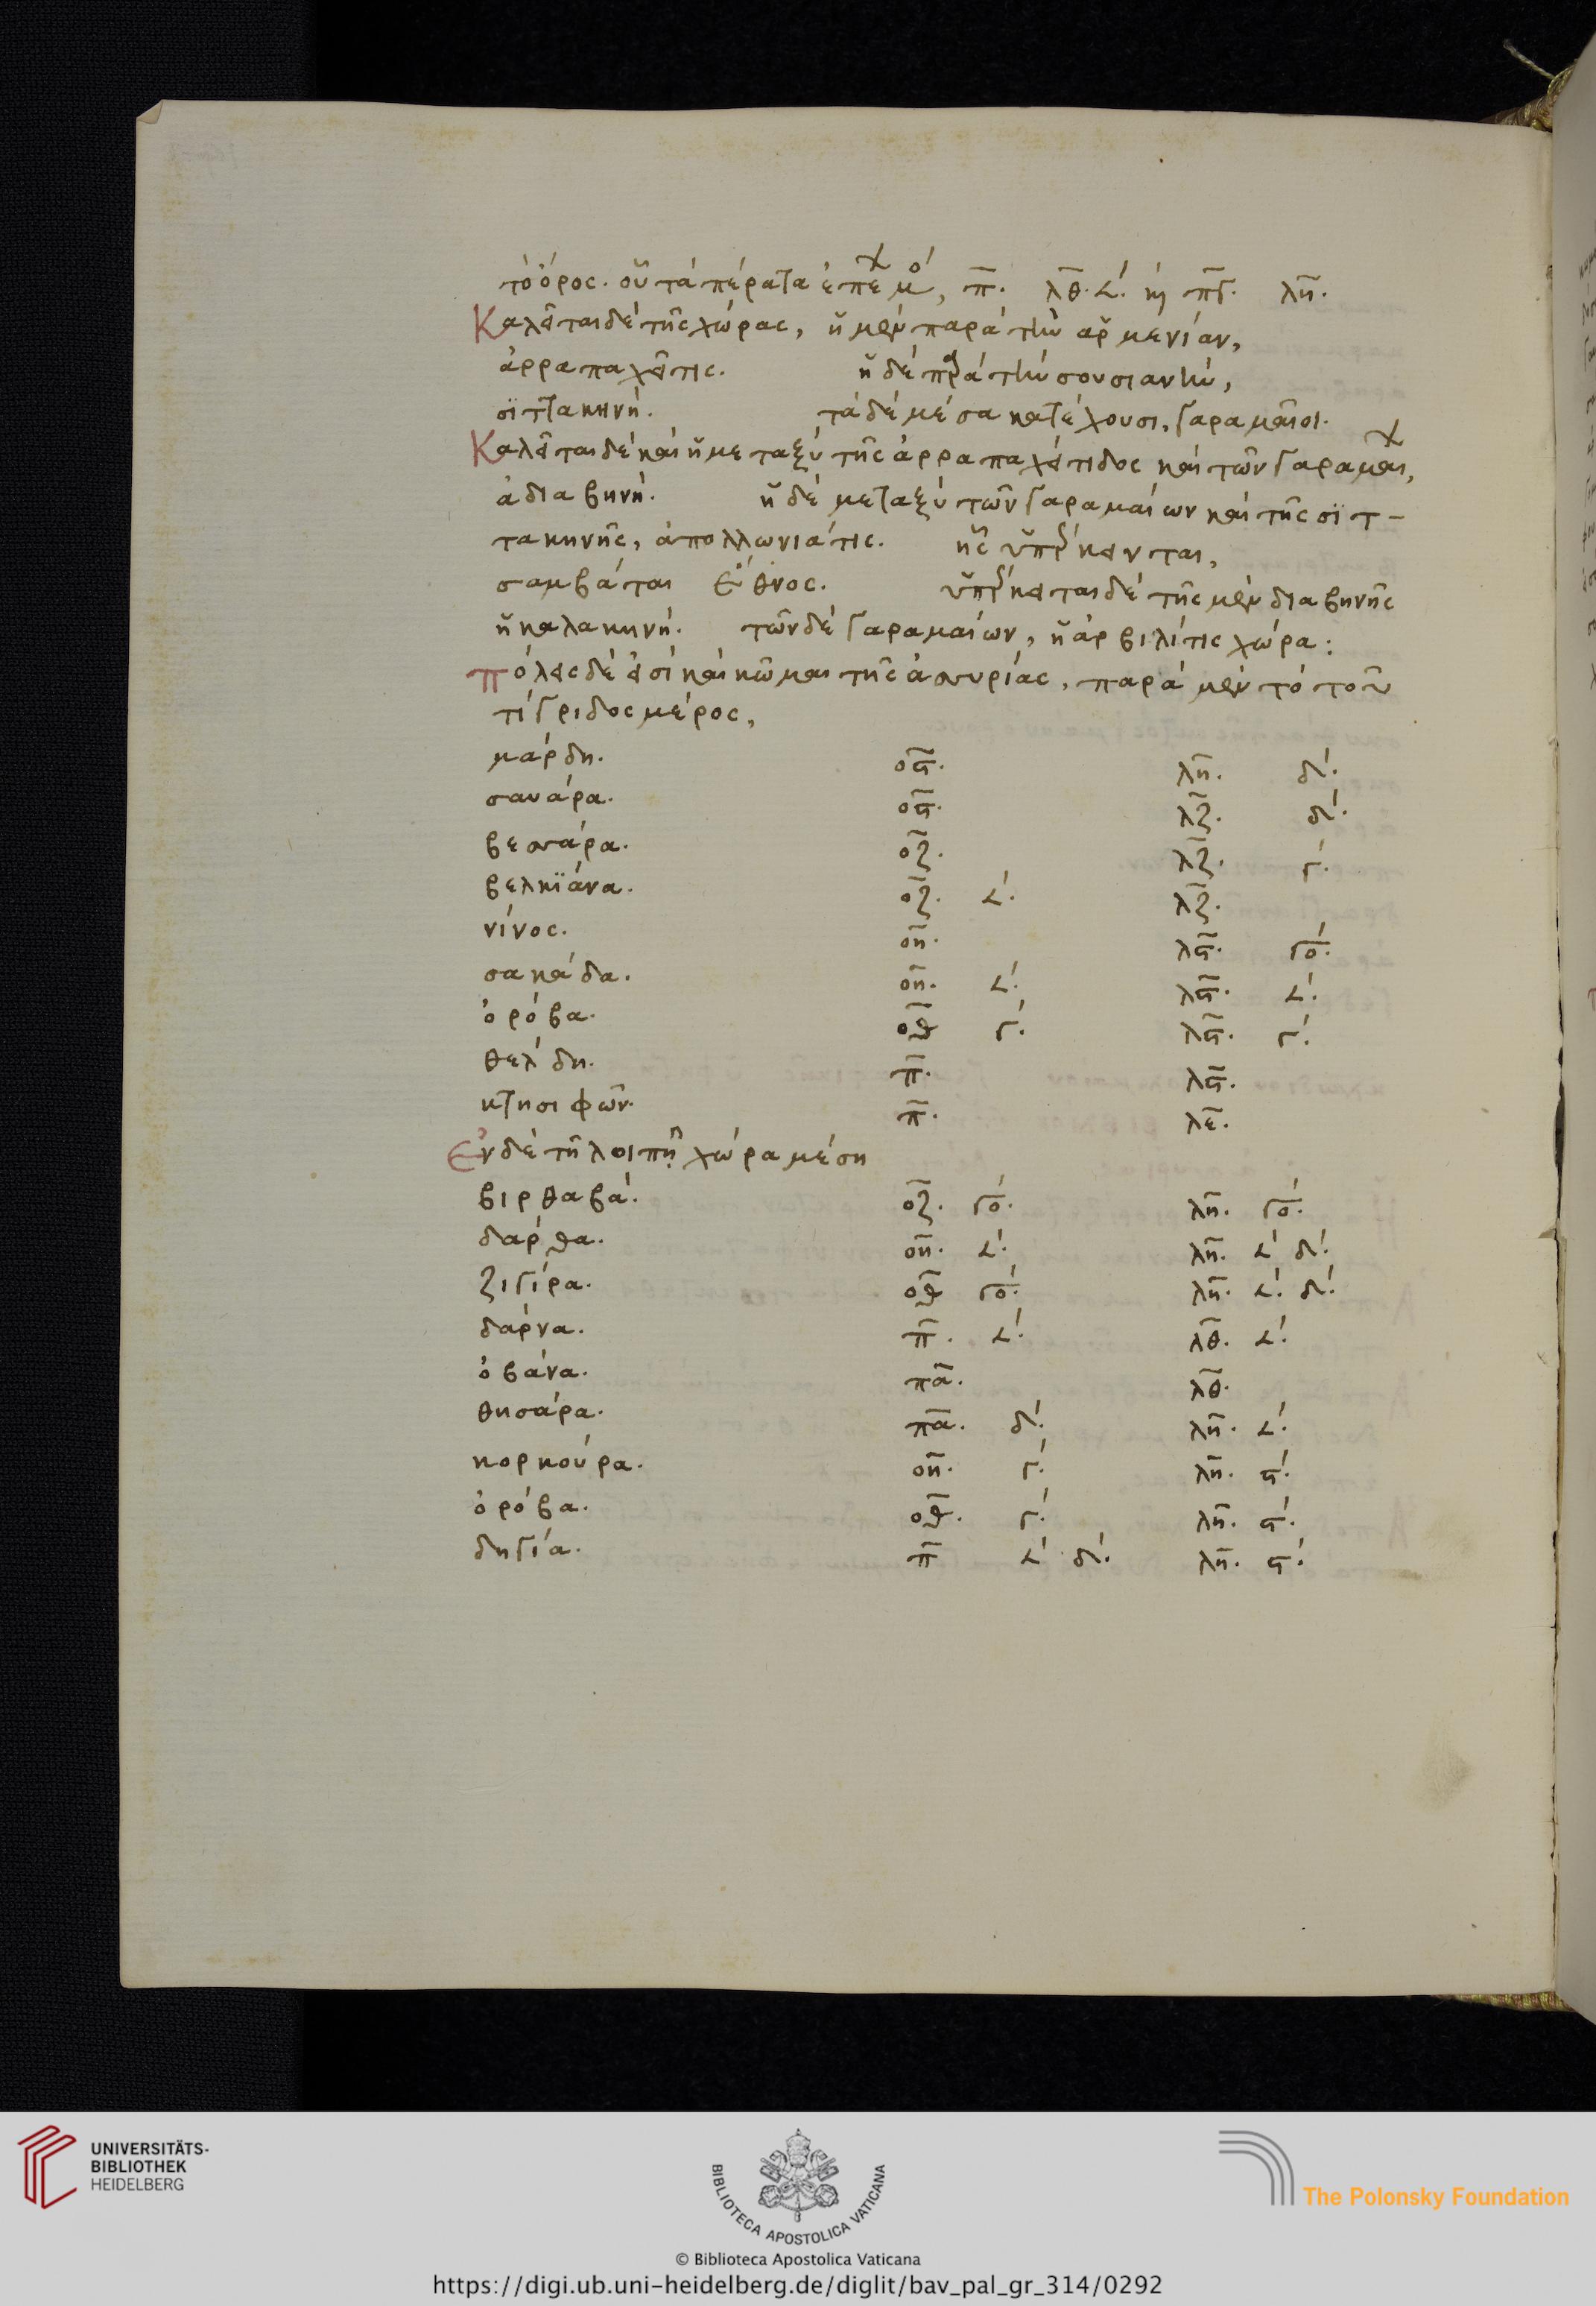 τὸ ὄρος. οὗ τὰ πέρατα ἐπέχ μο, π̅. λ̅θ̅. 𐅵΄. κ(αὶ) π̅γ̅. λ̅η̅.
Καλεῖται δὲ τῆς χώρας, ἡ μὲν παρὰ τὴν ἀρμενίαν,
ἀρραπαχεῖτις. ἡ δὲ παρὰ τὴν σουσιανὴν,
σϊττακηνή. τὰ δὲ μέσα κατέχουσι, γαραμαῖοι.
Καλεῖται δὲ καὶ ἡ μεταξὺ τῆς ἀρραπαχείτιδος καὶ τῶν γαραμαι,
ἀδιαβηνή. ἡ δὲ μεταξὺ τῶν γαραμαίων καὶ τῆς σϊτ-
τακηνῆς, ἀπολλωνιάτις. ἧς ὑπέρκεινται,
σαμβάται ἔθνος. ὑπέρκειται δὲ τῆς μὲν διαβηνῆς
ἡ καλακηνή. τῶν δὲ γαραμαίων, ἡ ἀρβιλίτις χώρα:
Πόλεις δὲ εἰσὶ καὶ κῶμαι τῆς ἀσσυρίας, παρὰ μὲν τὸ τοῦ
τίγριδος μέρος,
μάρδη. ο̅ϛ̅. λ̅η̅. δ΄.
σαυάρα. ο̅ϛ̅. λ̅ζ̅. δ΄.
βεσσάρα. ο̅ζ̅. λ̅ζ̅. γ΄.
βελκϊάνα. ο̅ζ̅. 𐅵΄. λ̅ζ̅.
νίνος. ο̅η̅. λ̅ϛ̅. γο΄.
σακάδα. ο̅η̅. 𐅵΄. λ̅ϛ̅. 𐅵΄.
ὀρόβα. ο̅θ̅ γ΄. λ̅ϛ̅. γ΄.
θελδη. π̅. λ̅ϛ̅.
κτησιφῶν. π̅. λ̅ε̅.
Ἐν δὲ τῇ λοιπῇ χώρα μέση
βιρθαβά. ο̅ζ̅. γο΄. λ̅η̅. γο΄.
δάρθα. ο̅η̅. 𐅵΄. λ̅η̅. 𐅵΄ δ΄.
ζιγίρα. ο̅θ̅ γο΄. λ̅η̅. 𐅵΄. δ΄.
δάρνα. π̅. 𐅵΄. λ̅θ̅. 𐅵΄.
ὀβάνα. π̅α̅. λ̅θ̅.
θησάρα. π̅α̅. δ΄. λ̅η̅. 𐅵΄.
κορκούρα. ο̅η̅. γ΄. λ̅η̅. ϛ΄.
ὀρόβα. ο̅θ̅. γ΄. λ̅η̅. ϛ΄.
δηγία. π̅ 𐅵΄ δ΄. λ̅η̅. ϛ΄.
UNIVERSITÄTS-
BIBLIOTHEK
HEIDELBERG
BIBLIOTECA APOSTOLICA VATICANA
The Polonsky Foundation
© Biblioteca Apostolica Vaticana
https://digi.ub.uni-heidelberg.de/diglit/bav_pal_gr_314/0292